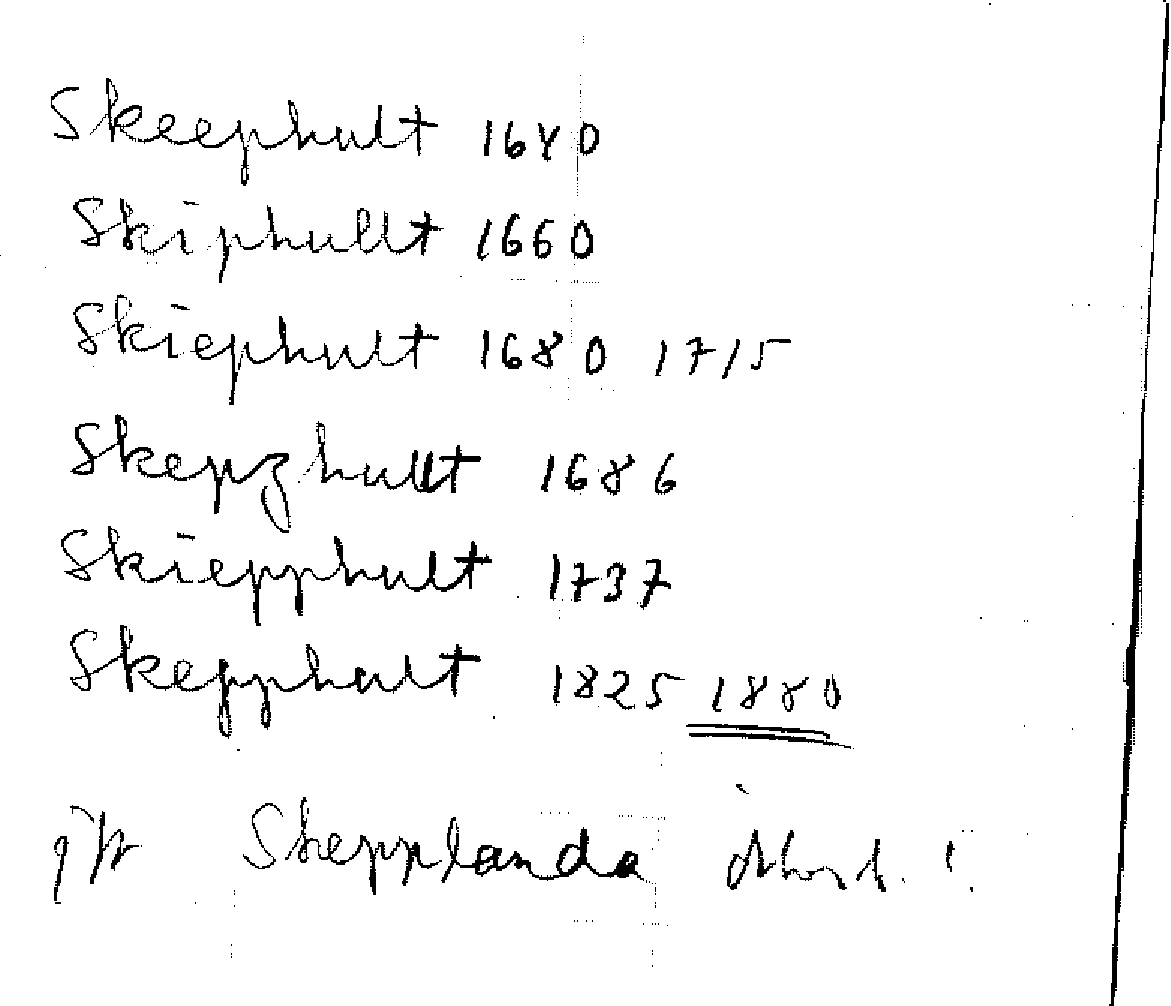 Skeephult 1640
Skiphullt 1660
Skiephult 1680 1715
Skepzhullt 1686
Skiepphult 1737
Skepphult 1825 1880
jfr Skepplanda